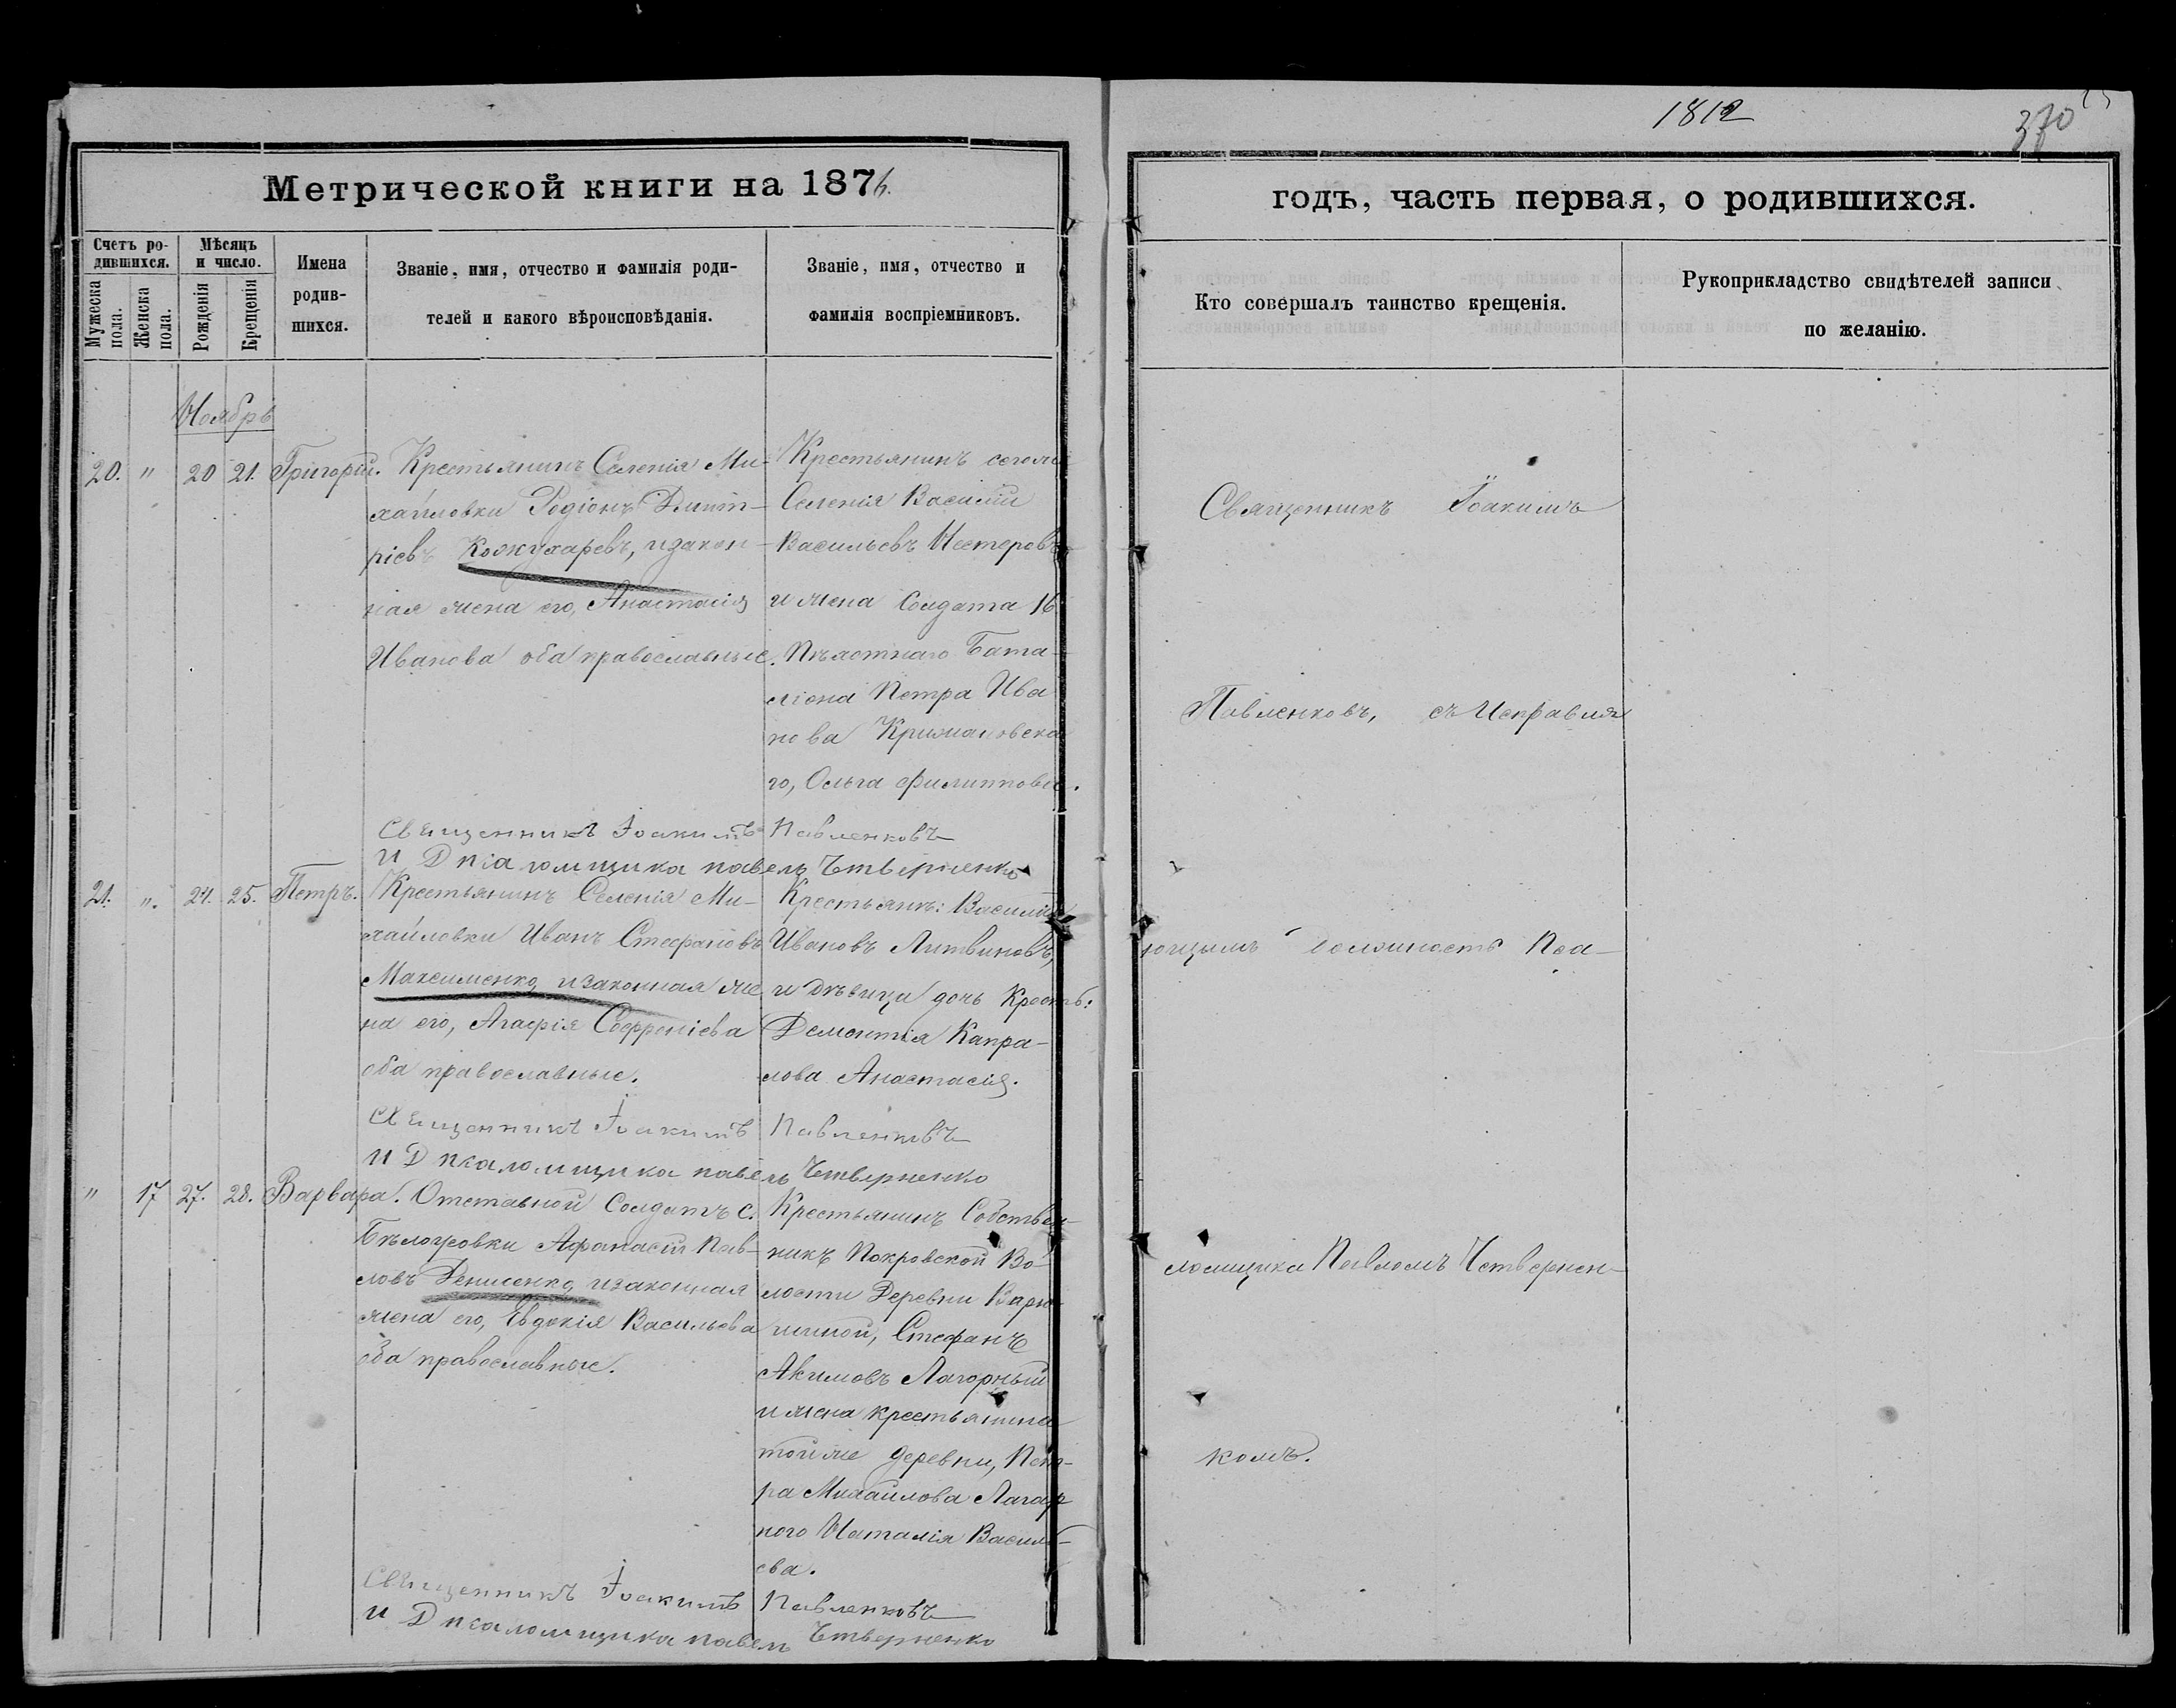 1812
370
Метрической книги на 1876.
годъ, часть первая, о родившихся.
Счетъ ро-
дившихся.
Мужеска пола.
Женска пола.
Мѣсяцъ
и число.
Рожденія
Крещенія
Имена
родив-
шихся.
Званіе, имя, отчество и фамилія роди-
телей и какого вѣроисповѣданія.
Званіе, имя, отчество и
фамилія воспріемниковъ.
Кто совершалъ таинство крещенія.
Рукоприкладство свидѣтелей записи
по желанію.
Ноябрь
20. " 20 21. Григорій.
Крестьянинъ Селенія Ми-
хайловки Родіонъ Дмит-
ріевъ Кожухаревъ, изакон-
ная жена его, Анастасія
Иванова оба православные.
Крестьянинъ сегоже
Селенія Василій
Васильевъ Нестеровъ
и жена Солдата 16
Пѣхотнаго Бата-
ліона Петра Ива
нова Крижановска
го, Ольга Филиппова.
Священникъ Іоакимъ Павленковъ
и Д псаломщика павелъ Четверненко
21. ". 24. 25. Петръ.
Крестьянинъ Селенія Ми-
хайловки Иванъ Стефановъ
Максименко, изаконная же
на его, Агафія Софроніева
оба православные.
Крестьянъ: Василій
Ивановъ Литвиновъ,
и дѣвица дочь Кресть:
Дементія Капра-
лова Анастасія.
Священникъ Іоакимъ Павленковъ
И Д псаломщика павелъ Четверненко
" 17 27. 28. Варвара.
Отставной Солдатъ с.
Бѣлогровки Афанасій Пав-
ловъ Денисенко, изаконная
жена его, Евдокія Васильева
оба православные.
Крестьянинъ Собствен-
никъ Покровской Во-
лости Деревни
Стефанъ
Акимовъ Лагорный
и жена крестьянина
тойже деревни, Пет-
ра Михайлова Лагор
ного Наталія Василь-
ева.
Священникъ Іоакимъ Павленковъ
и Д псаломщика павелъ Четверненко
Священникъ Іоакимъ
Павленковъ, съ Исправля
ющимъ должность Пса-
ломщика Павломъ Четвернен-
комъ.